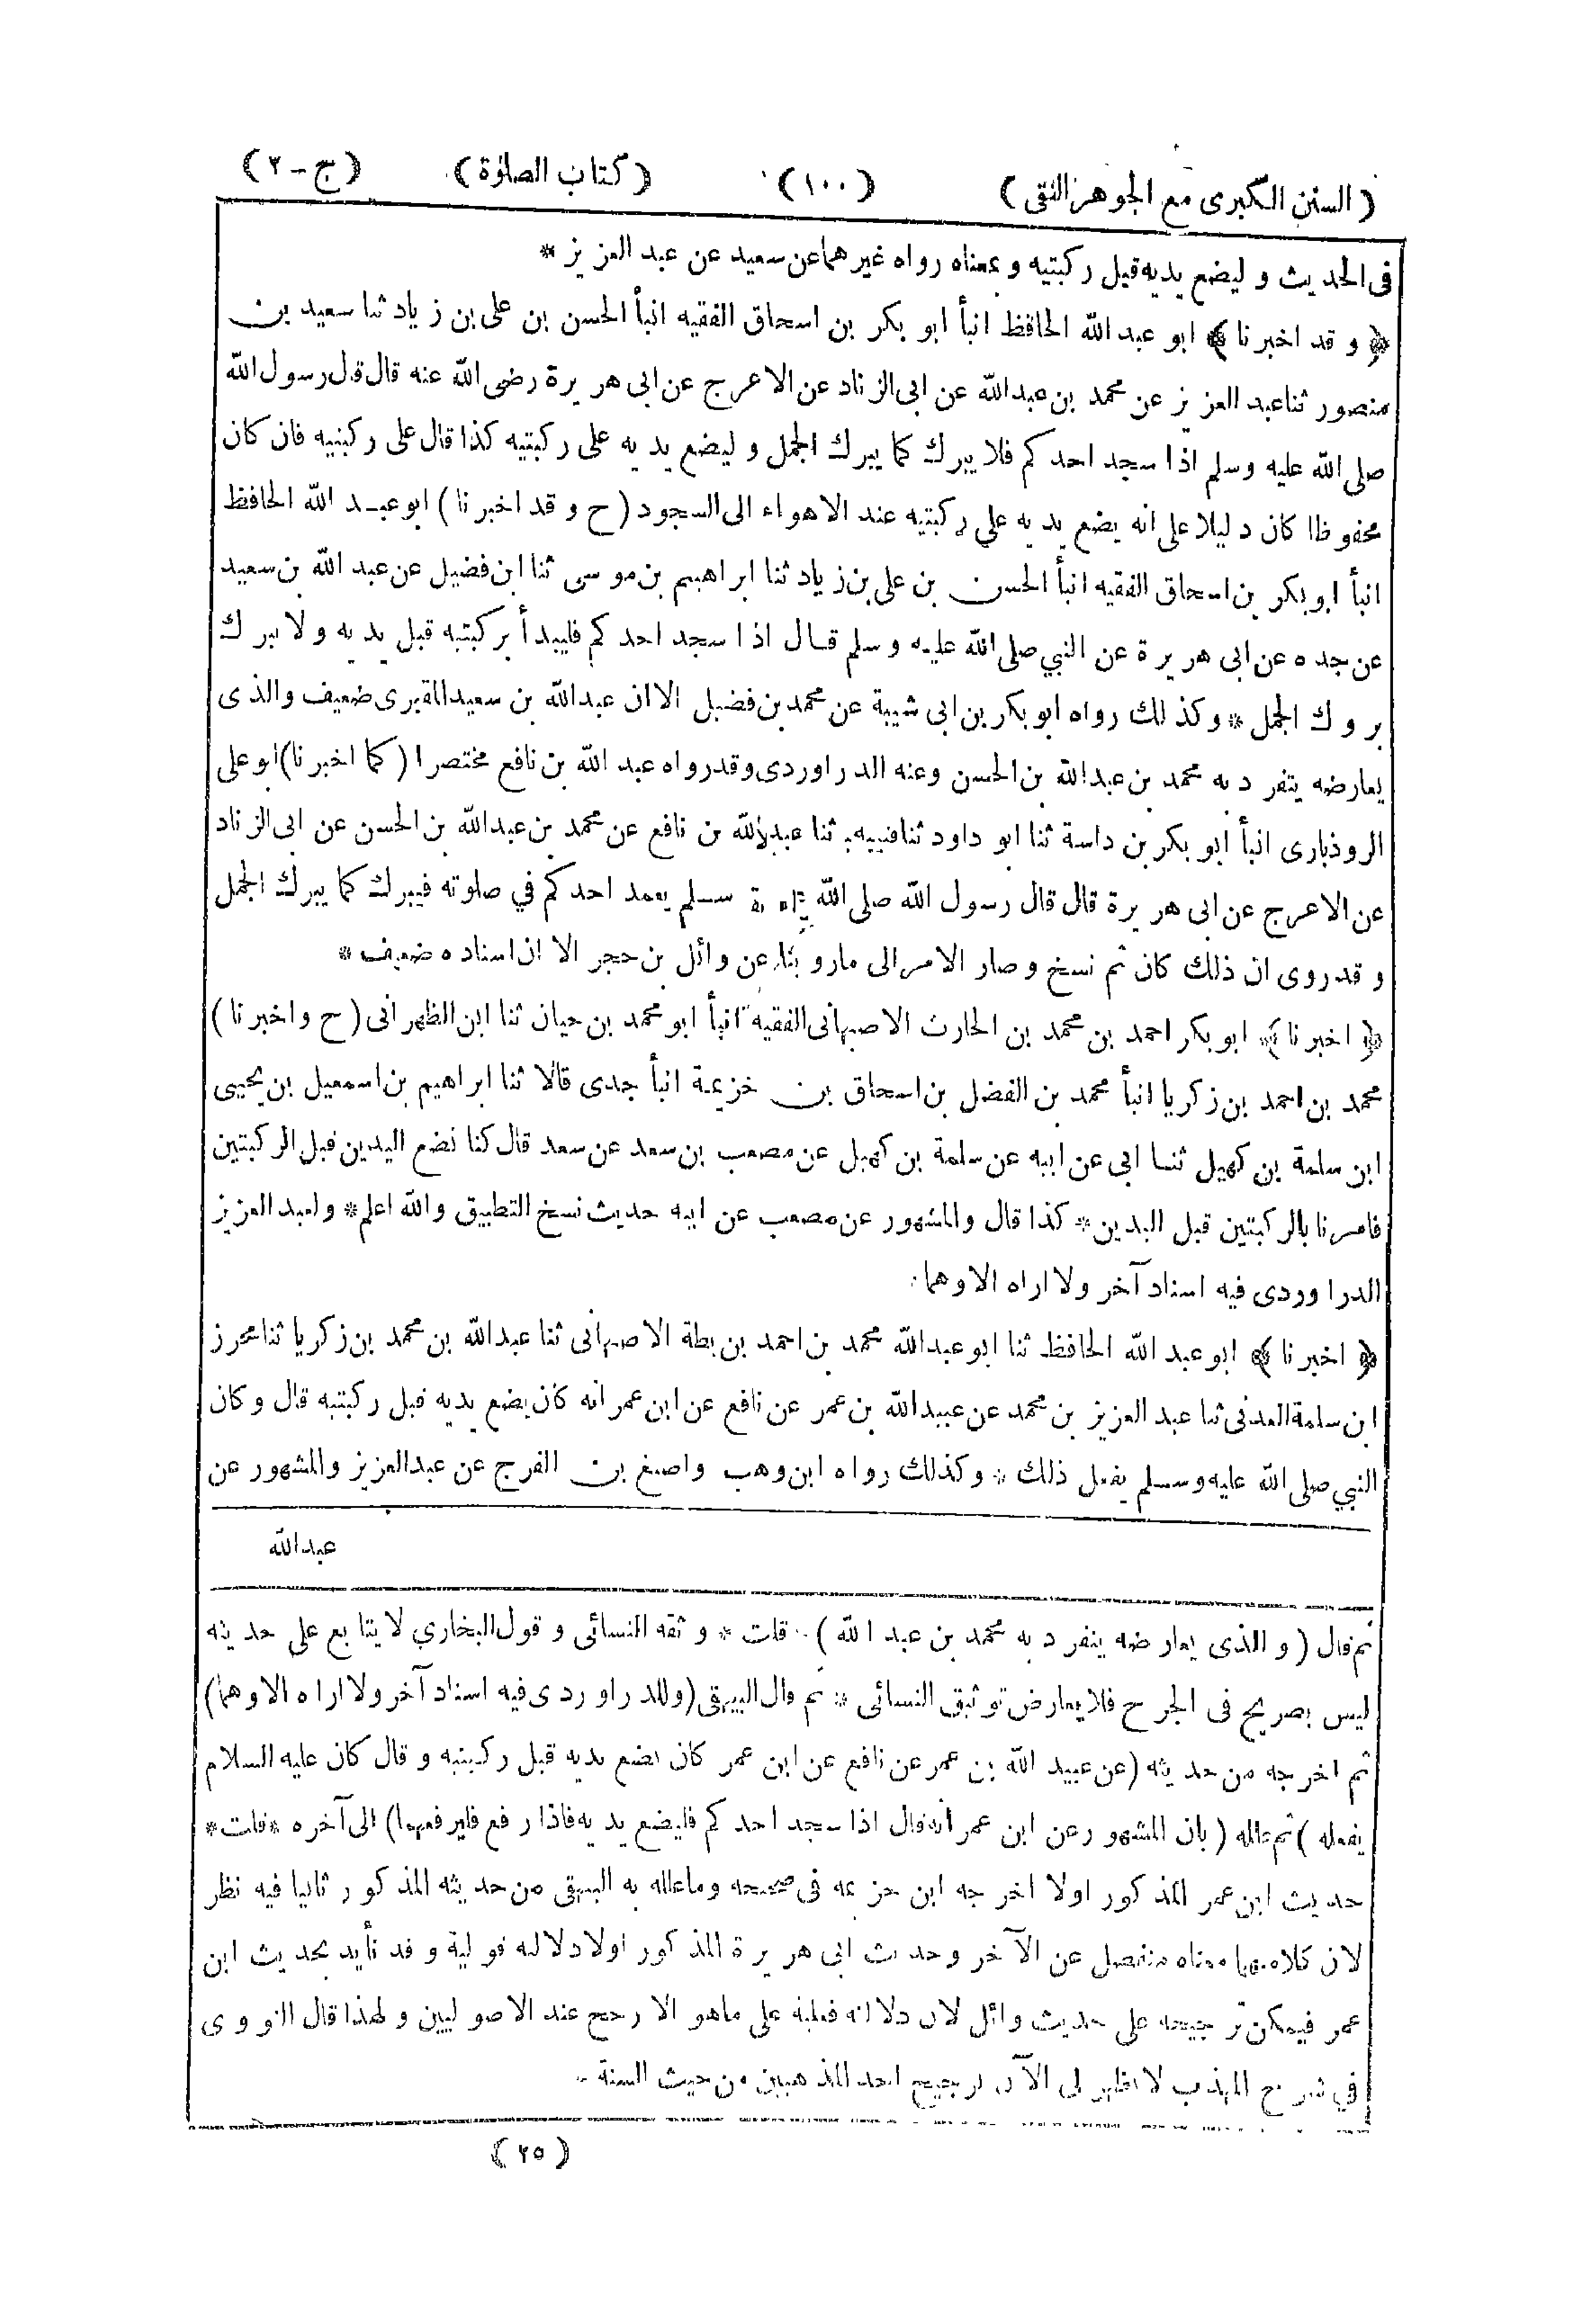 ( السنن الكبرى مع الجوهر النقى ) ( ١٠٠ ) ( كتاب الصلوة ) ( ج - ٢ )
فى الحديث و ليضع يديه قبل ركبتيه و بمعناه رواه غيرهما عن سعيد عن عبد العزيز *
﴿ و قد اخبرنا ﴾ ابو عبد الله الحافظ انبأ ابو بكر بن اسحاق الفقيه انبأ الحسن بن على بن زياد ثنا سعيد بن
منصور ثنا عبد العزيز عن محمد بن عبد الله عن ابى الزناد عن الاعرج عن ابى هريرة رضى الله عنه قال قال رسول الله
صلى الله عليه وسلم اذا سجد احدكم فلا يبرك كما يبرك الجمل و ليضع يديه على ركبتيه كذا قال على ركبتيه فان كان
محفوظا كان دليلا على انه يضع يديه على ركبتيه عند الاهواء الى السجود ( ح و قد اخبرنا ) ابو عبد الله الحافظ
انبأ ابو بكر بن اسحاق الفقيه انبأ الحسن بن على بن زياد ثنا ابراهيم بن موسى ثنا ابن فضيل عن عبد الله بن سعيد
عن جده عن ابى هريرة عن النبي صلى الله عليه وسلم قال اذا سجد احدكم فليبدأ بركبتيه قبل يديه و لا يبرك
بروك الجمل * وكذلك رواه ابو بكر بن ابى شيبة عن محمد بن فضيل الا ان عبد الله بن سعيد المقبرى ضعيف والذى
يعارضه يتفرد به محمد بن عبد الله بن الحسن وعنه الدراوردى وقد رواه عبد الله بن نافع مختصرا ( كما اخبرنا ) ابو على
الروذبارى انبأ ابو بكر بن داسة ثنا ابو داود ثنا قتيبة ثنا عبد الله بن نافع عن محمد بن عبد الله بن الحسن عن ابى الزناد
عن الاعرج عن ابى هريرة قال قال رسول الله صلى الله وسلم يعمد احدكم في صلوته فيبرك كما يبرك الجمل
و قد روى ان ذلك كان ثم نسخ و صار الامر الى ما روينا عن وائل بن حجر الا ان اسناده ضعيف *
﴿ اخبرنا ﴾ ابو بكر احمد بن محمد بن الحارث الاصبهانى الفقيه انبأ ابو محمد بن حيان ثنا ابن الظهرانى ( ح واخبرنا )
محمد بن احمد بن زكريا انبأ محمد بن الفضل بن اسحاق بن خزيمة انبأ جدى قالا ثنا ابراهيم بن اسمعيل بن يحيى
ابن سلمة بن كهيل ثنا ابى عن ابيه عن سلمة بن كهيل عن مصعب بن سعد عن سعد قال كنا نضع اليدين قبل الركبتين
فامرنا بالركبتين قبل اليدين * كذا قال والمشهور عن مصعب عن ابيه حديث نسخ التطبيق والله اعلم * ولعبد العزيز
الدراوردى فيه اسناد آخر ولا اراه الا وهما
﴿ اخبرنا ﴾ ابو عبد الله الحافظ ثنا ابو عبد الله محمد بن احمد بن بطة الاصبهانى ثنا عبد الله بن محمد بن زكريا ثنا محرز
ابن سلمة العدنى ثنا عبد العزيز بن محمد عن عبيد الله بن عمر عن نافع عن ابن عمر انه كان يضع يديه قبل ركبتيه قال وكان
النبي صلى الله عليه وسلم يفعل ذلك * وكذلك رواه ابن وهب واصبغ بن الفرج عن عبد العزيز والمشهور عن
عبد الله
ثم قال ( و الذى يعارضه ينفرد به محمد بن عبد الله ) قلت * وثقه النسائى و قول البخاري لا يتابع على حديثه
ليس بصريح فى الجرح فلا يعارض توثيق النسائى * ثم قال البيهقى ( وللدراوردى فيه اسناد آخر ولا اراه الا وهما )
ثم اخرجه من حديثه ( عن عبيد الله بن عمر عن نافع عن ابن عمر كان يضع يديه قبل ركبتيه و قال كان عليه السلام
يفعله ) ثم علله ( بان المشهور عن ابن عمر انه قال اذا سجد احدكم فليضع يديه فاذا رفع فليرفعهما ) الى آخره * قلت *
حديث ابن عمر المذكور اولا اخرجه ابن خزيمة فى صحيحه وما علله به البيهقى من حديثه المذكور ثانيا فيه نظر
لان كلا منهما معناه منفصل عن الآخر وحديث ابى هريرة المذكور اولا دلالته قولية و قد تأيد بحديث ابن
عمر فيمكن ترجيحه على حديث وائل لان دلالته فعلية على ما هو الارجح عند الاصوليين و لهذا قال النووى
في شرح المهذب لا يظهر لى الآن ترجيح احد المذهبين من حيث السنة
( ٢٥ )